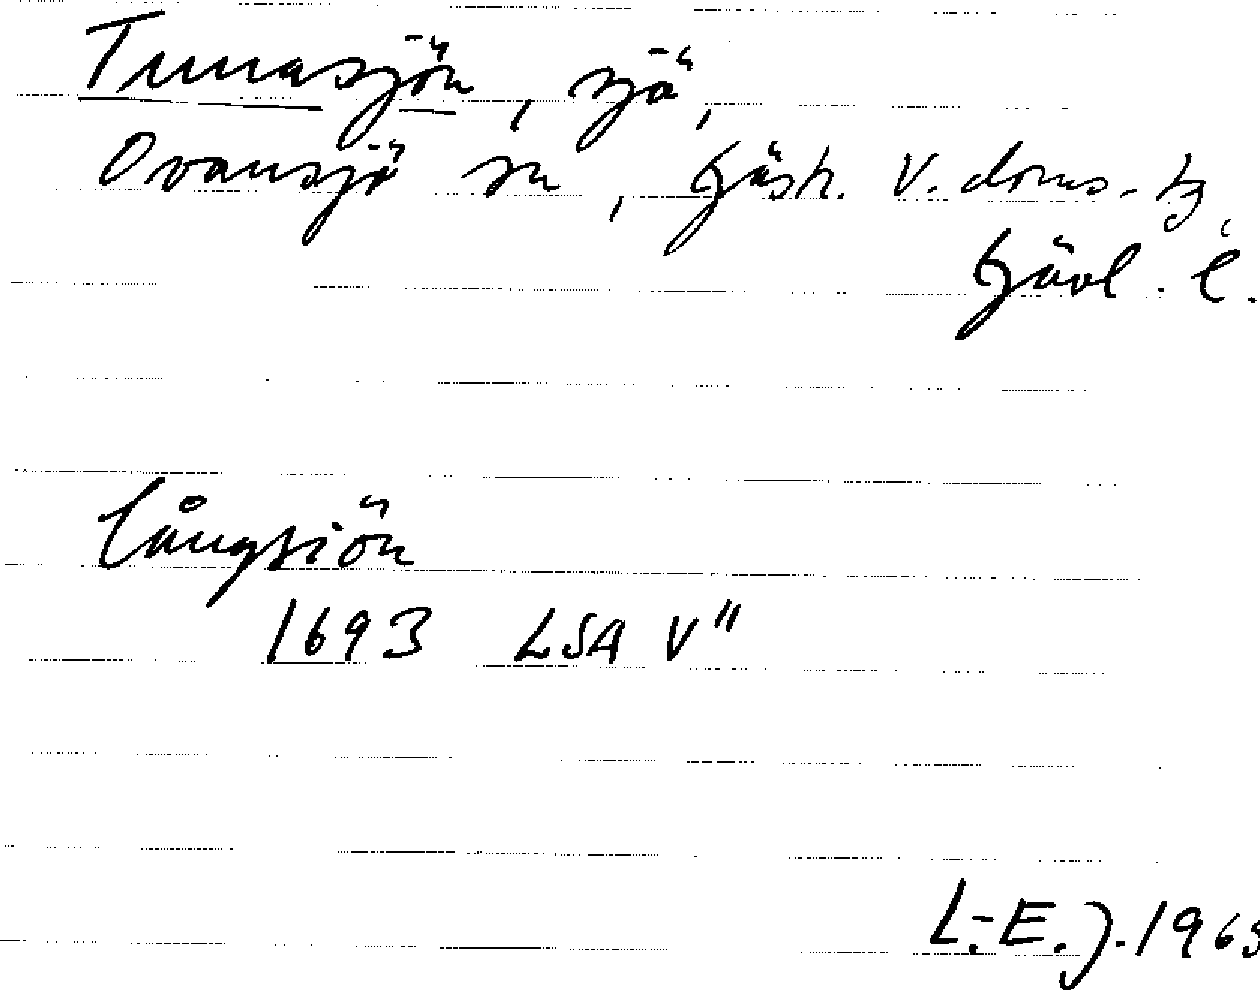 Tunasjön, sjö,
Ovansjö sn, Gästr. V. doms-tg,
Gävl. l.
Långsiön
1693 LSA V"
L.-E. J. 1963